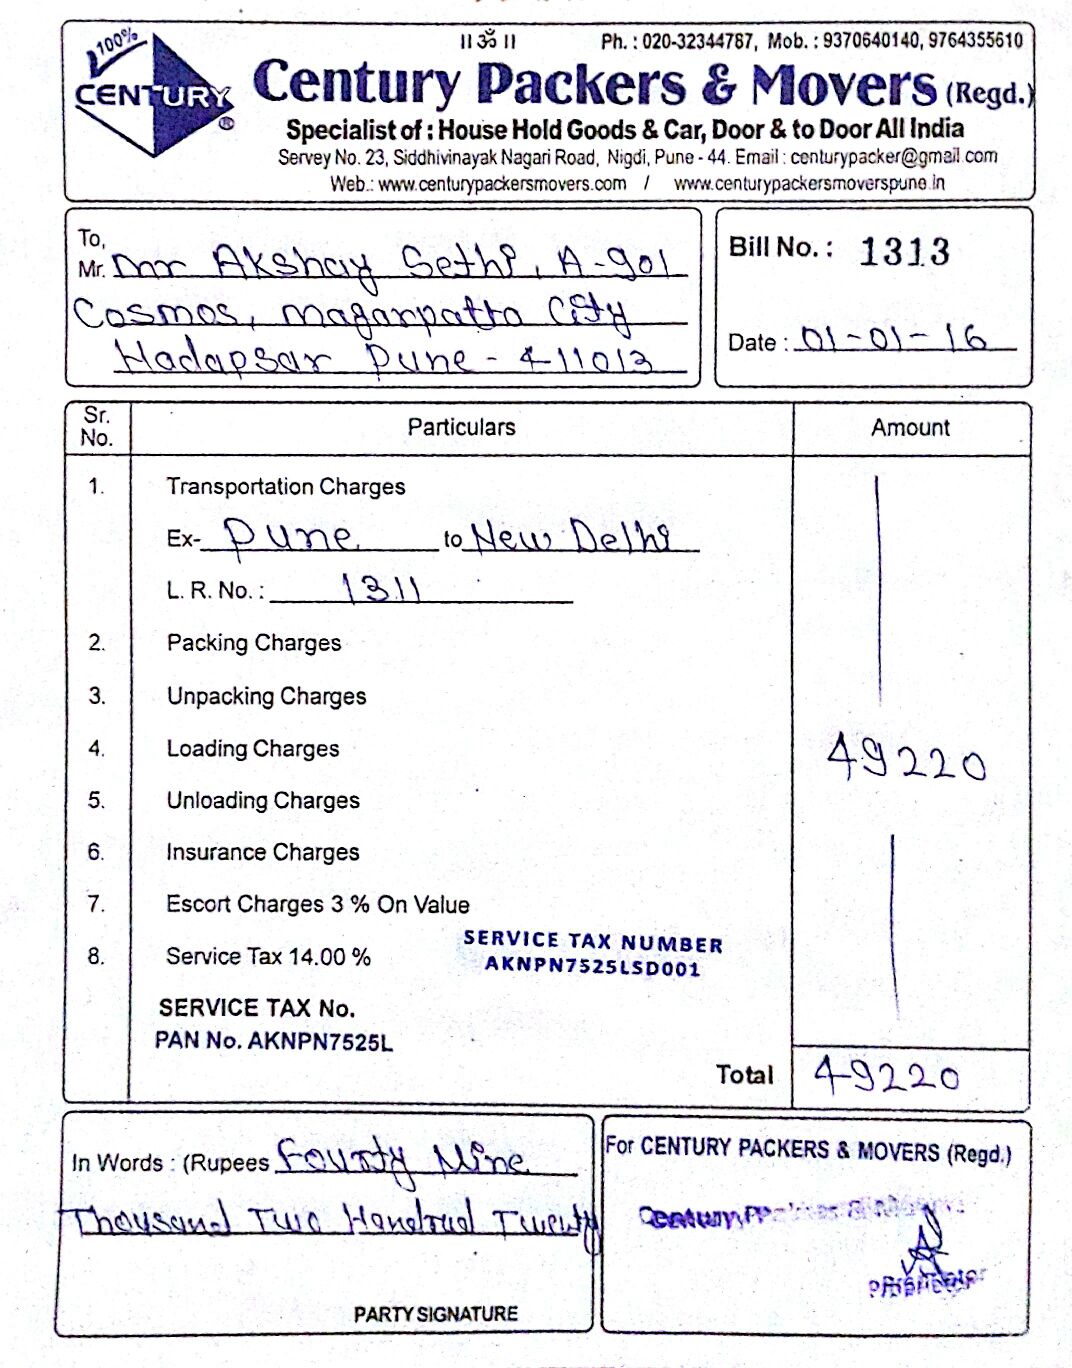 100%
CENTURY
®
॥ ॐ ॥
Ph. : 020-32344787, Mob. : 9370640140, 9764355610
Century Packers & Movers (Regd.)
Specialist of : House Hold Goods & Car, Door & to Door All India
Servey No. 23, Siddhivinayak Nagari Road, Nigdi, Pune - 44. Email : centurypacker@gmail.com
Web.: www.centurypackersmovers.com / www.centurypackersmoverspune.in
To,
Mr. Mr Akshay Sethi, A-901
Cosmos, Magarpatta City
Hadapsar Pune - 411013
Bill No. : 1313
Date : 01-01-16
Sr. No. Particulars Amount
1. Transportation Charges
Ex- Pune to New Delhi
L. R. No. : 1311
2. Packing Charges
3. Unpacking Charges
4. Loading Charges 49220
5. Unloading Charges
6. Insurance Charges
7. Escort Charges 3 % On Value
8. Service Tax 14.00 %
SERVICE TAX NUMBER
AKNPN7525LSD001
SERVICE TAX No.
PAN No. AKNPN7525L
Total 49220
In Words : (Rupees Fourty Nine
Thousand Two Handrud Twenty
PARTY SIGNATURE
For CENTURY PACKERS & MOVERS (Regd.)
Century